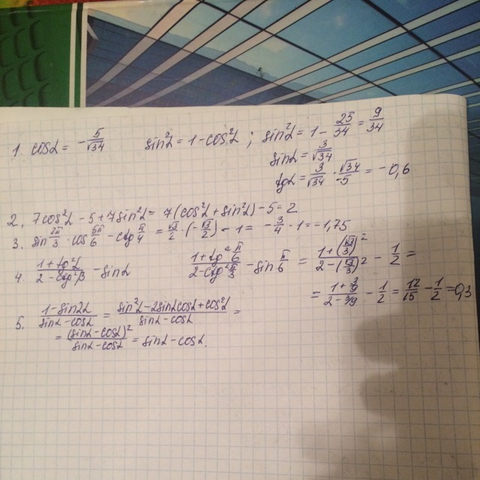 1. cosα = -5/√34   sin²α = 1 - cos²α ; sin²α = 1 - 25/34 = 9/34
sinα = 3/√34
tgα = 3/√34 · √34/-5 = -0,6
2. 7cos²α - 5 + 7sin²α = 7(cos²α + sin²α) - 5 = 2
3. sin 2π/3 · cos 5π/6 - ctg π/4 = √3/2 · (-√3/2) - 1 = -3/4 - 1 = -1,75
4. (1+tg²α)/(2-ctg²β) - sinα   (1+tg² π/6)/(2-ctg² π/3) - sin π/6 = (1+(√3/3)²)/(2-(√3/3)²) - 1/2 =
= (1+3/9)/(2-3/9) - 1/2 = 12/15 - 1/2 = 0,3
5. (1-sin2α)/(sinα-cosα) = (sin²α-2sinαcosα+cos²α)/(sinα-cosα) =
= (sinα-cosα)²/(sinα-cosα) = sinα-cosα.